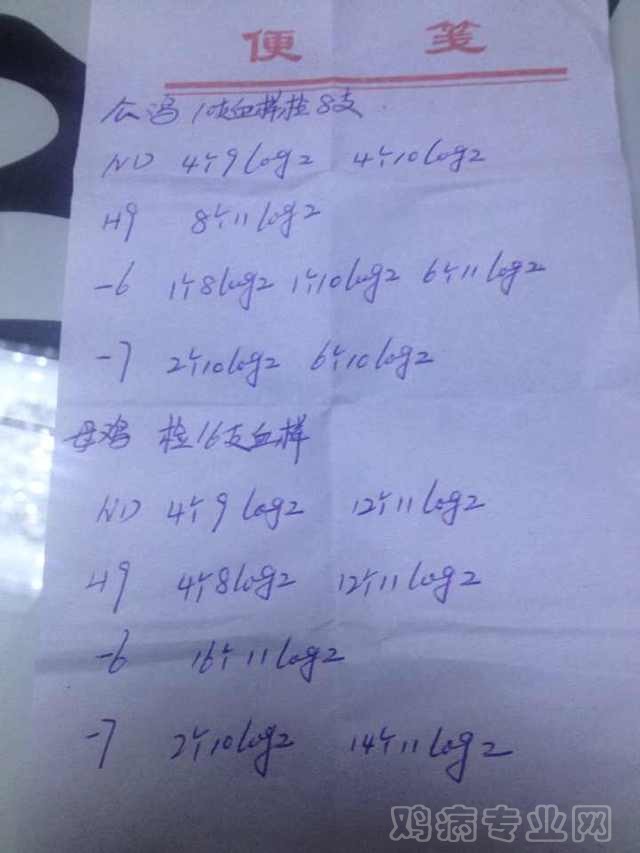 便 笺
公鸡 10支血样检8支.
ND 4个9log2 4个10log2
H9 8个11log2
-6 1个8log2 1个10log2 6个11log2
-7 2个10log2 6个10log2
母鸡 检16支血样
ND 4个9log2 12个11log2
H9 4个8log2 12个11log2
-6 16个11log2
-7 2个10log2 14个11log2
鸡病专业网